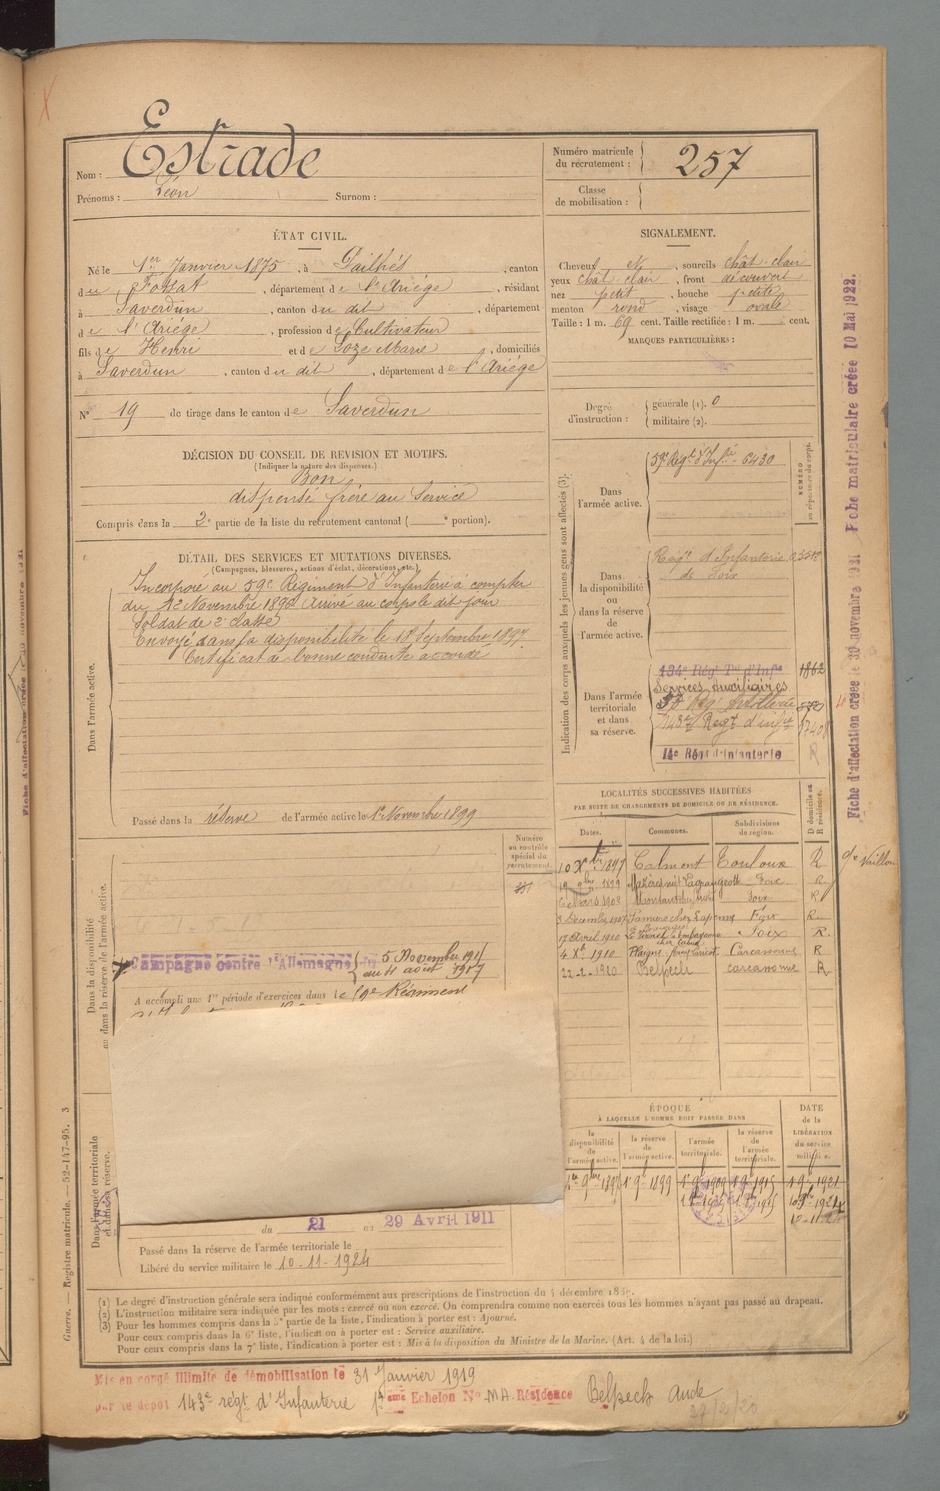 Nom : Estrade
Prénoms : Léon Surnom :
Numéro matricule du recrutement : 257
Classe de mobilisation :
ÉTAT CIVIL.
Né le 1er Janvier 1875, à Pailhès, canton
du Fossat, département de l'Ariège, résidant
à Saverdun, canton du dit, département
de l'Ariège, profession de Cultivateur
fils de Henri et de Loze Marie, domiciliés
à Saverdun, canton du dit, département de l'Ariège
N° 19 de tirage dans le canton de Saverdun
SIGNALEMENT.
Cheveux, sourcils chât-clair
yeux chât-clair, front découvert
nez petit, bouche petite
menton rond, visage ovale
Taille : 1 m. 69 cent. Taille rectifiée : 1 m. cent.
MARQUES PARTICULIÈRES :
Degré d'instruction : générale (1). 0
militaire (2).
DÉCISION DU CONSEIL DE REVISION ET MOTIFS.
(Indiquer la nature des dispenses.)
Bon
dispensé frère au service
Compris dans la 2e partie de la liste du recrutement cantonal ( e portion).
DÉTAIL DES SERVICES ET MUTATIONS DIVERSES.
(Campagnes, blessures, actions d'éclat, décorations, etc.)
Dans l'armée active.
Incorporé au 59e Régiment d'Infanterie à compter
du Novembre Arrivé au corps le dit jour
Soldat de 2e classe
Envoyé dans la disponibilité le 18 Septembre 1897
Certificat de bonne conduite accordé
Passé dans la réserve de l'armée active le 1er Novembre 1899
Indication des corps auxquels les jeunes gens sont affectés (3).
NUMÉRO au répertoire du corps.
Dans l'armée active.
59e Régt d'Infie - 6430
Dans la disponibilité ou dans la réserve de l'armée active.
Régt d'Infanterie
de Foix
Dans l'armée territoriale et dans sa réserve.
134e Régt Tal d'Infie 1862
Services Auxiliaires
143e Régt d'Infie
14e Régt d'Infanterie
LOCALITÉS SUCCESSIVES HABITÉES
PAR SUITE DE CHANGEMENTS DE DOMICILE OU DE RÉSIDENCE.
Dates. Communes. Subdivisions de région. D domicile ou R résidence.
10 Xbre 1897 Calmont Toulouse R
1899 Foix R
Mars 1902 Foix R
3 Décembre 1907 Foix R
17 Avril 1910 Foix R.
4 Xbre 1910 Carcassonne R
22-2-1920 Belpech Carcassonne R
Numéro au contrôle spécial du recrutement.
Dans la disponibilité ou dans la réserve de l'armée active.
Campagne contre l'Allemagne du 5 Novembre 1915
au 11 août 1917
A accompli une 1re période d'exercices dans le Régiment
Dans l'armée territoriale et dans sa réserve.
du 21 au 29 Avril 1911
Passé dans la réserve de l'armée territoriale le
Libéré du service militaire le 10-11-1924
ÉPOQUE
À LAQUELLE L'HOMME DOIT PASSER DANS
la disponibilité de l'armée active. la réserve de l'armée active. l'armée territoriale. la réserve de l'armée territoriale. DATE de la LIBÉRATION du service militaire.
1er 9bre 1896 1er 9bre 1899
(1) Le degré d'instruction générale sera indiqué conformément aux prescriptions de l'instruction du 4 décembre
(2) L'instruction militaire sera indiquée par les mots : exercé ou non exercé. On comprendra comme non exercés tous les hommes n'ayant pas passé au drapeau.
(3) Pour les hommes compris dans la 5e partie de la liste, l'indication à porter est : Ajourné.
Pour ceux compris dans la 6e liste, l'indication à porter est : Service auxiliaire.
Pour ceux compris dans la 7e liste, l'indication à porter est : Mis à la disposition du Ministre de la Marine. (Art. 4 de la loi.)
Mis en congé illimité de démobilisation le 31 Janvier 1919
par le dépôt 143e régt d'Infanterie Echelon N° MA Résidence Belpech Aude
27/2/20
Guerre. — Registre matricule. — 52-147-95. 3
Fiche d'affectation créée le 30 novembre 1921 Fiche matriculaire créée 10 Mai 1922.